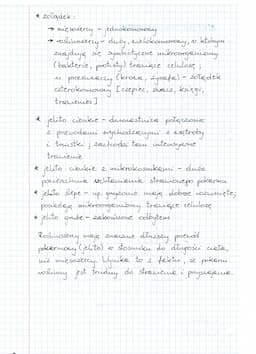 * żołądek:
→ mięsożercy - jednokomorowy
→ roślinożercy - duży, wielokomorowy, w którym
znajdują się symbiotyczne mikroorganizmy
(bakterie, protisty) trawiące celulozę;
u przeżuwaczy (krowa, żyrafa) - żołądek
czterokomorowy [czepiec, żwacz, księgi,
trawieniec]
* jelito cienkie - dwunastnica połączona
z przewodami wychodzącymi z wątroby
i trzustki; zachodzi tam intensywne
trawienie
* jelito cienkie z mikrokosmkami - duża
powierzchnia wchłaniania strawionego pokarmu
* jelito ślepe - np. gryzonie mają dobrze rozwinięte;
posiadają mikroorganizmy trawiące celulozę
* jelito grube - zakończone odbytem
Roślinożercy mają znacznie dłuższy przewód
pokarmowy (jelito) w stosunku do długości ciała,
niż mięsożercy. Wynika to z faktu, że pokarm
roślinny jest trudny do strawienia i przyswojenia.